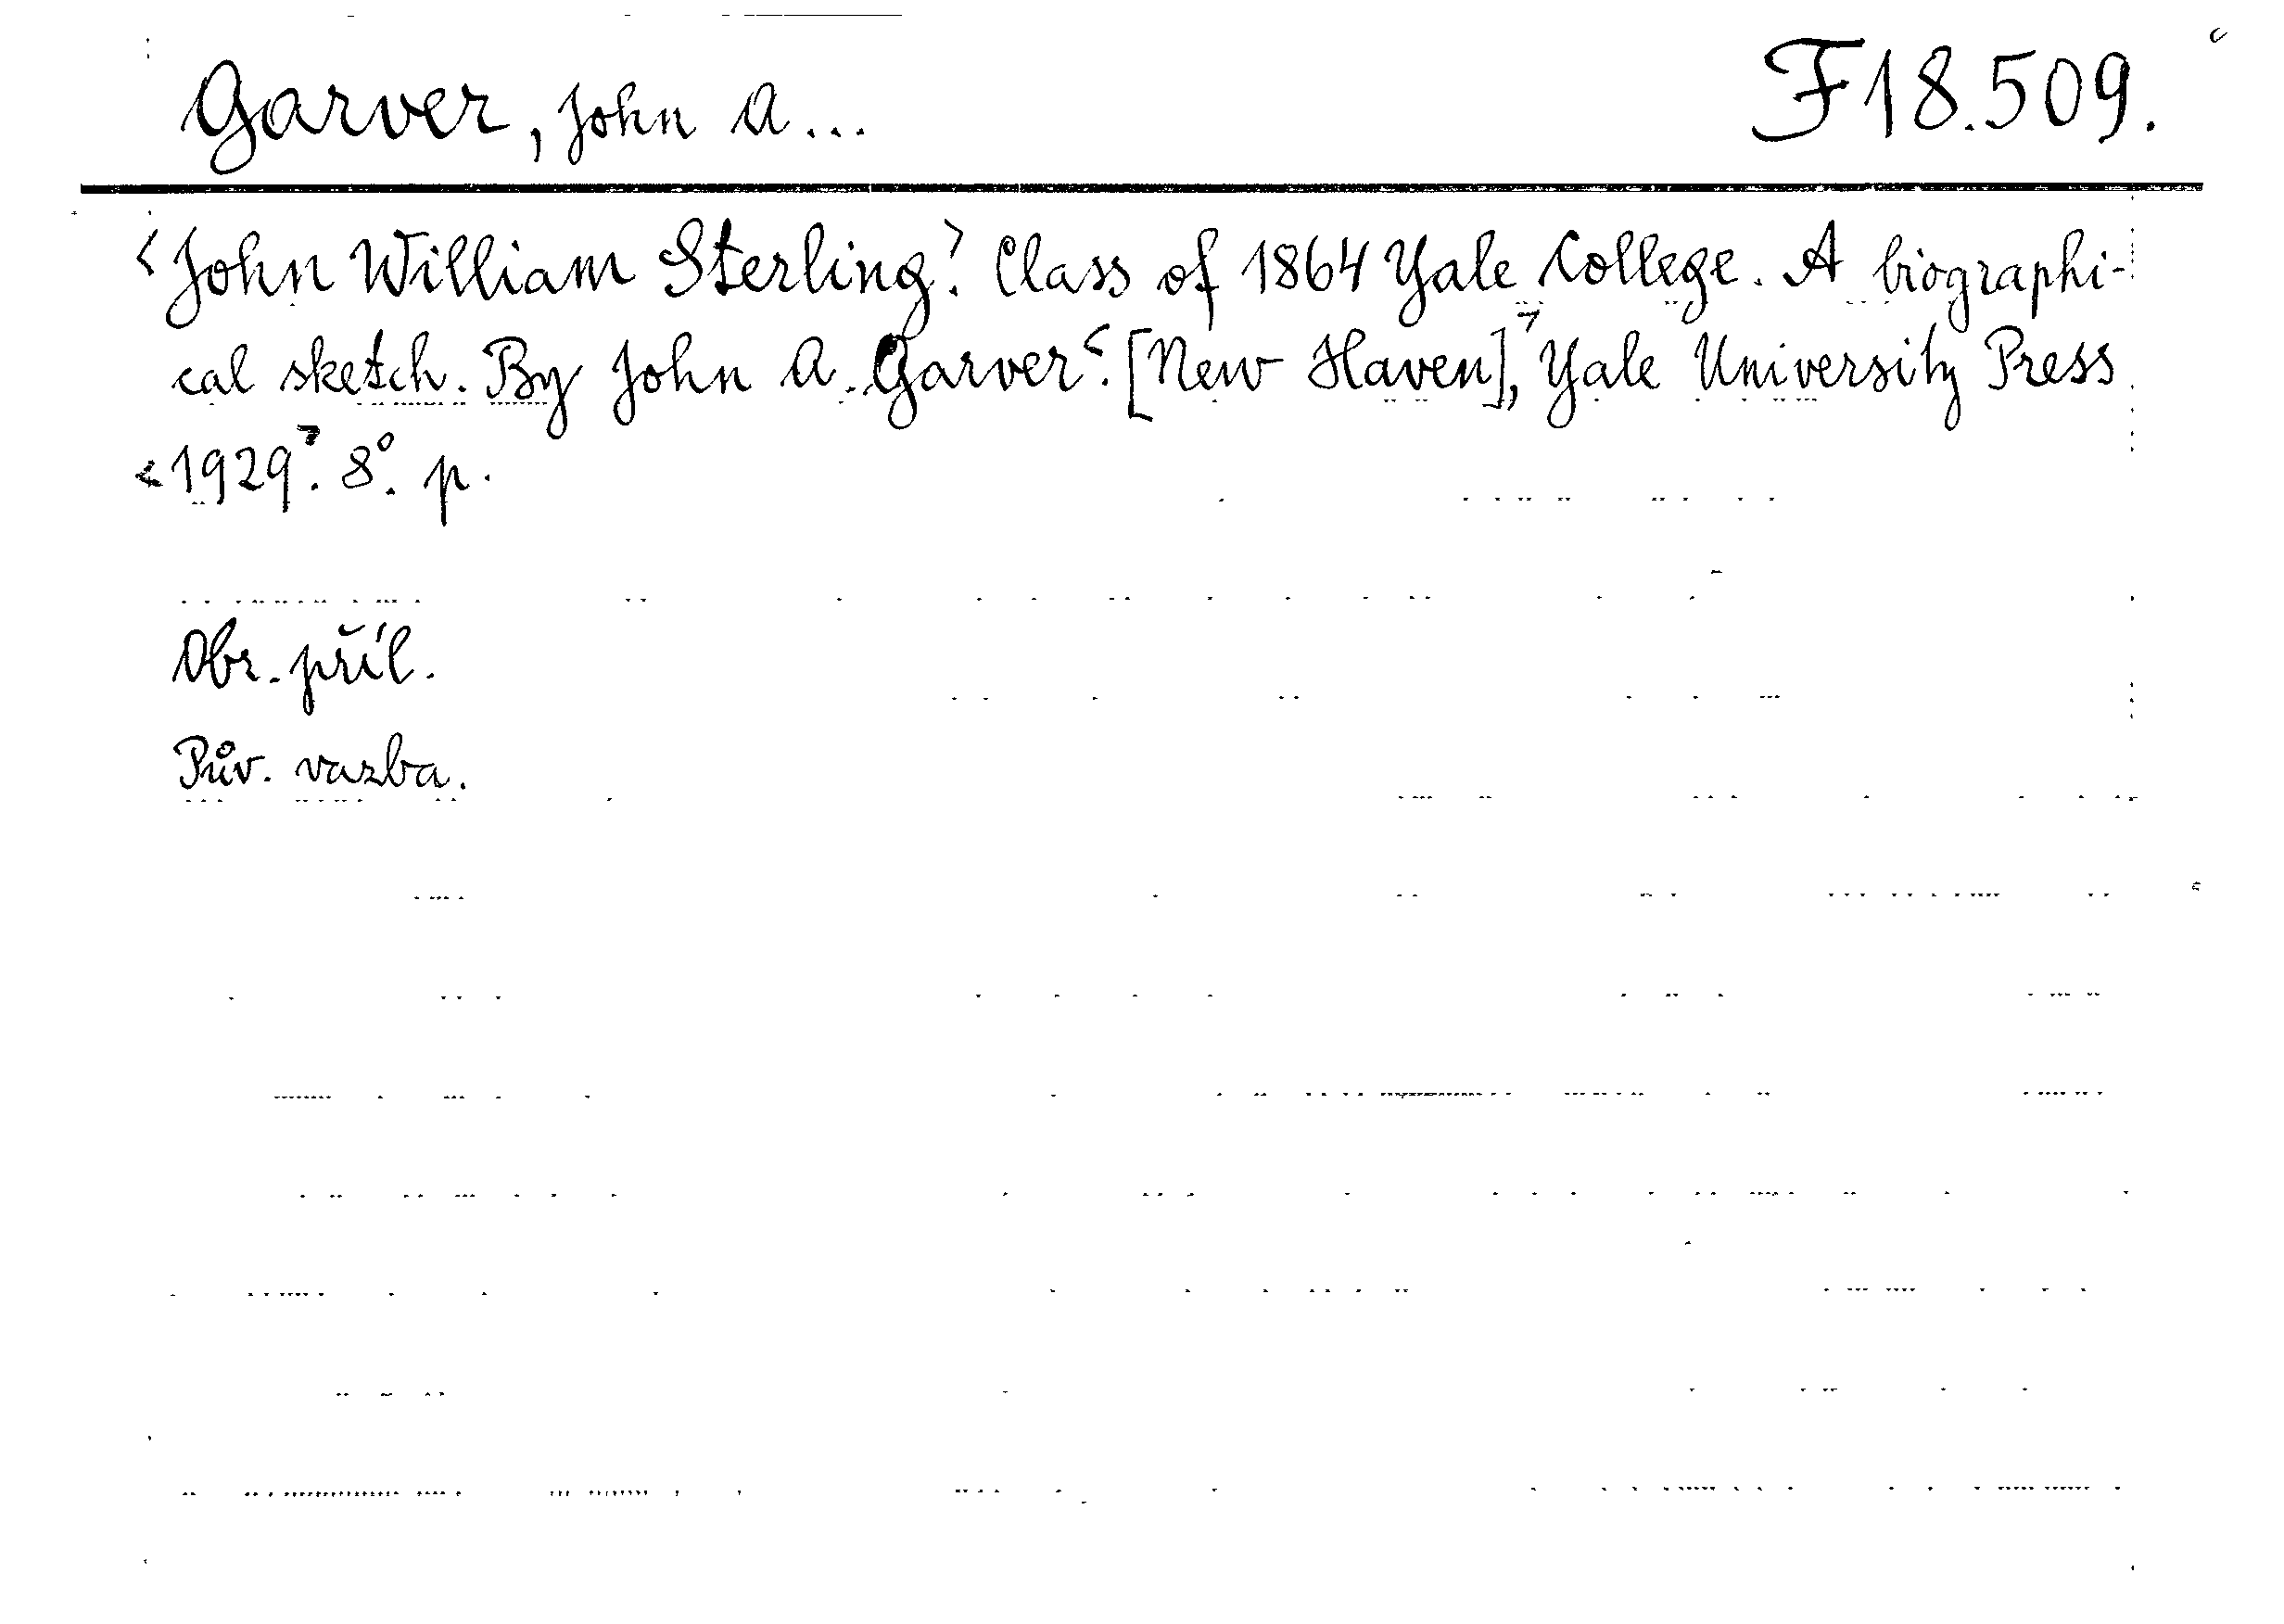 Garver, John A... F18.509.
<John William Sterling>. Class of 1864 Yale College. A biographi-
cal sketch. By John A. Garver<. [New Haven],> Yale University Press
<1929>. 8°. p.
Obr. příl.
Pův. vazba.